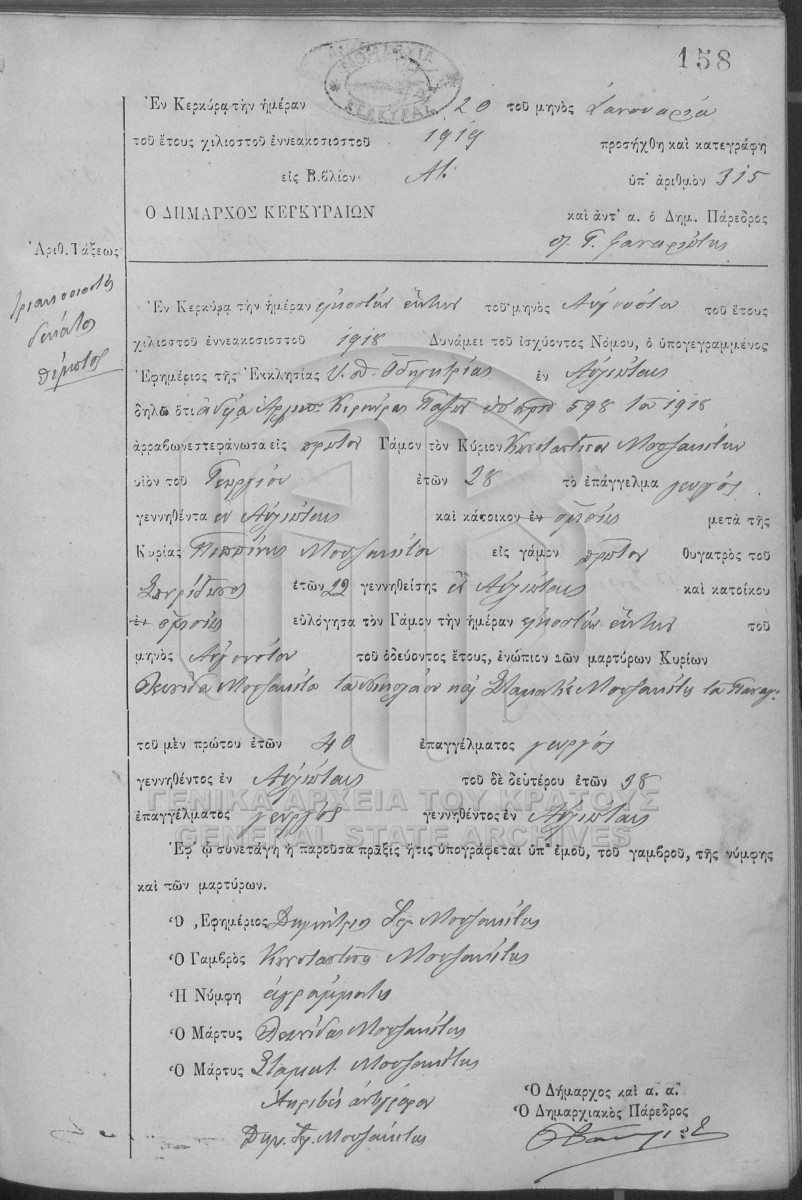 158
ΝΟΜΑΡΧΙΑ ΚΕΡΚΥΡΑΣ
Ἐν Κερκύρᾳ τὴν ἡμέραν 20 τοῦ μηνὸς Ἰανουαρίου
τοῦ ἔτους χιλιοστοῦ ἐννεακοσιοστοῦ 1919 προσήχθη καὶ κατεγράφη
εἰς Βιβλίον Α΄. ὑπ' ἀριθμὸν 315
Ο ΔΗΜΑΡΧΟΣ ΚΕΡΚΥΡΑΙΩΝ καὶ ἀντ' α. ὁ Δημ. Πάρεδρος
Ἀριθ. Τάξεως
τριακοσιοστὸς
δέκατος
πέμπτος
Ἐν Κερκύρᾳ τὴν ἡμέραν εἰκοστὴν ἕκτην τοῦ μηνὸς Αὐγούστου τοῦ ἔτους
χιλιοστοῦ ἐννεακοσιοστοῦ 1918 Δυνάμει τοῦ ἰσχύοντος Νόμου, ὁ ὑπογεγραμμένος
Ἐφημέριος τῆς Ἐκκλησίας Υ. Θ. Οδηγητρίας ἐν Αὐλιώταις
δηλῶ ὅτι ἀδείᾳ Κερκύρας Παξῶν ὑπ' ἀριθ 598 τοῦ 1918
ἀρραβωνεστεφάνωσα εἰς πρῶτον Γάμον τὸν Κύριον Κωνσταντῖνον Μουζακίτην
υἱὸν τοῦ Γεωργίου ἐτῶν 28 τὸ ἐπάγγελμα γεωργὸς
γεννηθέντα ἐν Αὐλιώταις καὶ κάτοικον ἐν ὁμοίως μετὰ τῆς
Κυρίας Πεππίνης Μουζακίτου εἰς γάμον πρῶτον θυγατρὸς τοῦ
Σπυρίδωνος ἐτῶν 22 γεννηθείσης ἐν Αὐλιώταις καὶ κατοίκου
ἐν ὁμοίως εὐλόγησα τὸν Γάμον τὴν ἡμέραν εἰκοστὴν ἕκτην τοῦ
μηνὸς Αὐγούστου τοῦ ὁδεύοντος ἔτους, ἐνώπιον τῶν μαρτύρων Κυρίων
Λεωνίδα Μουζακίτα τοῦ Νικολάου καὶ Σταματίου Μουζακίτη τοῦ Παναγ.
τοῦ μὲν πρώτου ἐτῶν 40 ἐπαγγέλματος γεωργὸς
γεννηθέντος ἐν Αὐλιώταις τοῦ δὲ δευτέρου ἐτῶν 38
ΓΕΝΙΚΑ ΑΡΧΕΙΑ ΤΟΥ ΚΡΑΤΟΥΣ
ἐπαγγέλματος γεωργὸς γεννηθέντος ἐν Αὐλιώταις
GENERAL STATE ARCHIVES
Ἐφ' ᾧ συνετάγη ἡ παροῦσα πρᾶξις ἥτις ὑπογράφεται ὑπ' ἐμοῦ, τοῦ γαμβροῦ, τῆς νύμφης
καὶ τῶν μαρτύρων.
Ὁ Ἐφημέριος Δημήτριος Μουζακίτης
Ὁ Γαμβρὸς Κωνσταντῖνος Μουζακίτης
Ἡ Νύμφη ἀγράμματος
Ὁ Μάρτυς Λεωνίδας Μουζακίτης
Ὁ Μάρτυς Σταματ. Μουζακίτης
Ἀκριβὲς ἀντίγραφον
Ὁ Δήμαρχος καὶ α. α.
Ὁ Δημαρχιακὸς Πάρεδρος
Δημ. Μουζακίτης